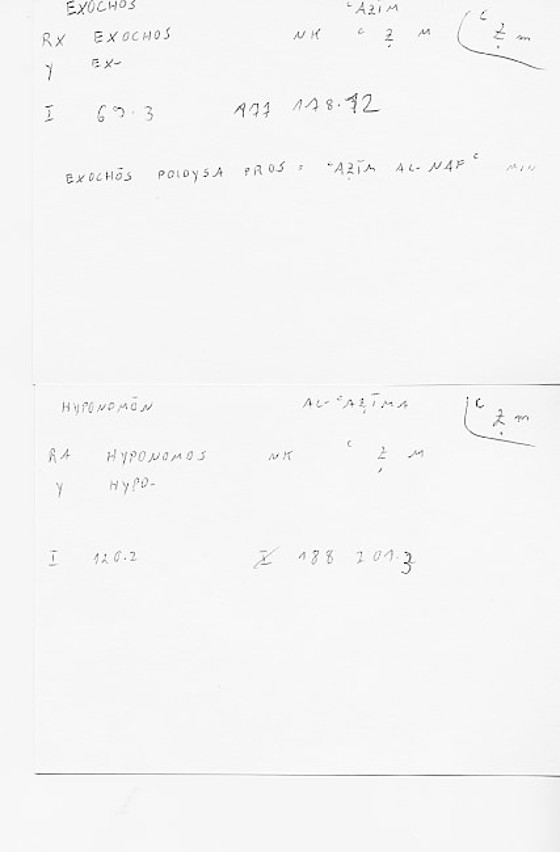 EXOCHOS ʿAẒĪM
RX EXOCHOS NK ʿ Ẓ M ʿ Ẓ m
Y EX-
I 69.3 A77 178.12
EXOCHŌS POIOYSA PROS = ʿAẒĪM AL-NAFʿ MIN
HYPONOMŌN AL-ʿAẒĪMA ʿ Ẓ m
RA HYPONOMOS NK ʿ Ẓ M
Y HYPO-
I 120.2 188 201.3